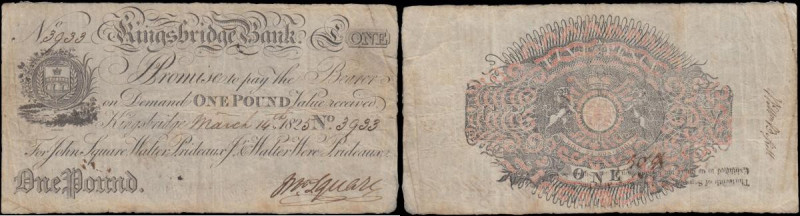 No. 3933 Kingsbridge Bank £ ONE
I Promise to pay the Bearer
on Demand ONE POUND Value received
Kingsbridge March 14th 1825 No. 3933
For John Square, Walter Prideaux Jr. & Walter Were Prideaux.
One Pound. Jno. Square
ONE